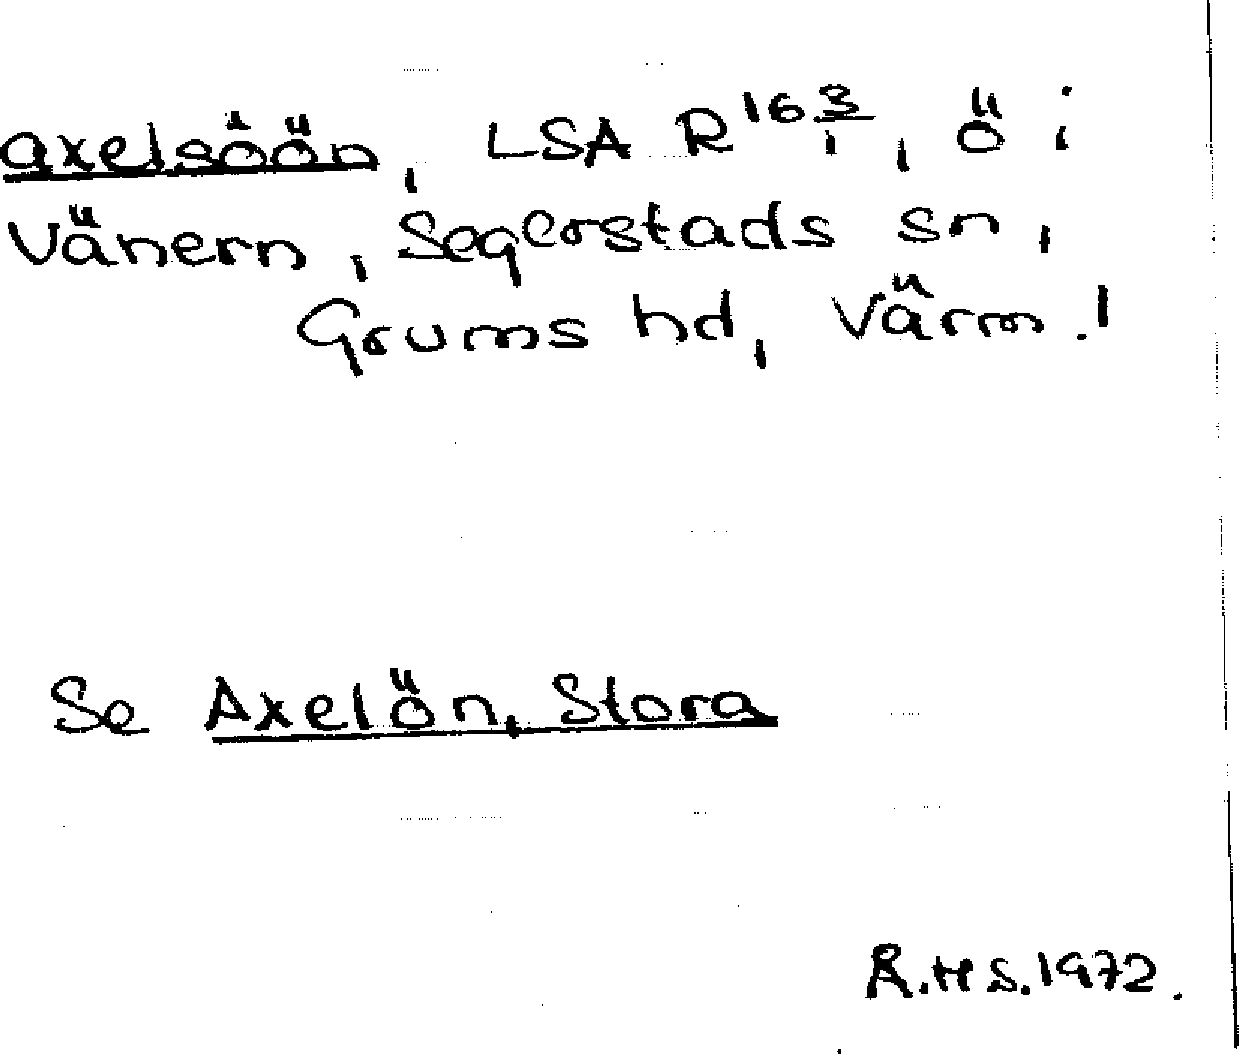 axelsöön, LSA R 16 3/1, ö i
Vänern, Segerstads sn,
Grums hd, Värm.!
Se Axelön, Stora
R.H S. 1972.